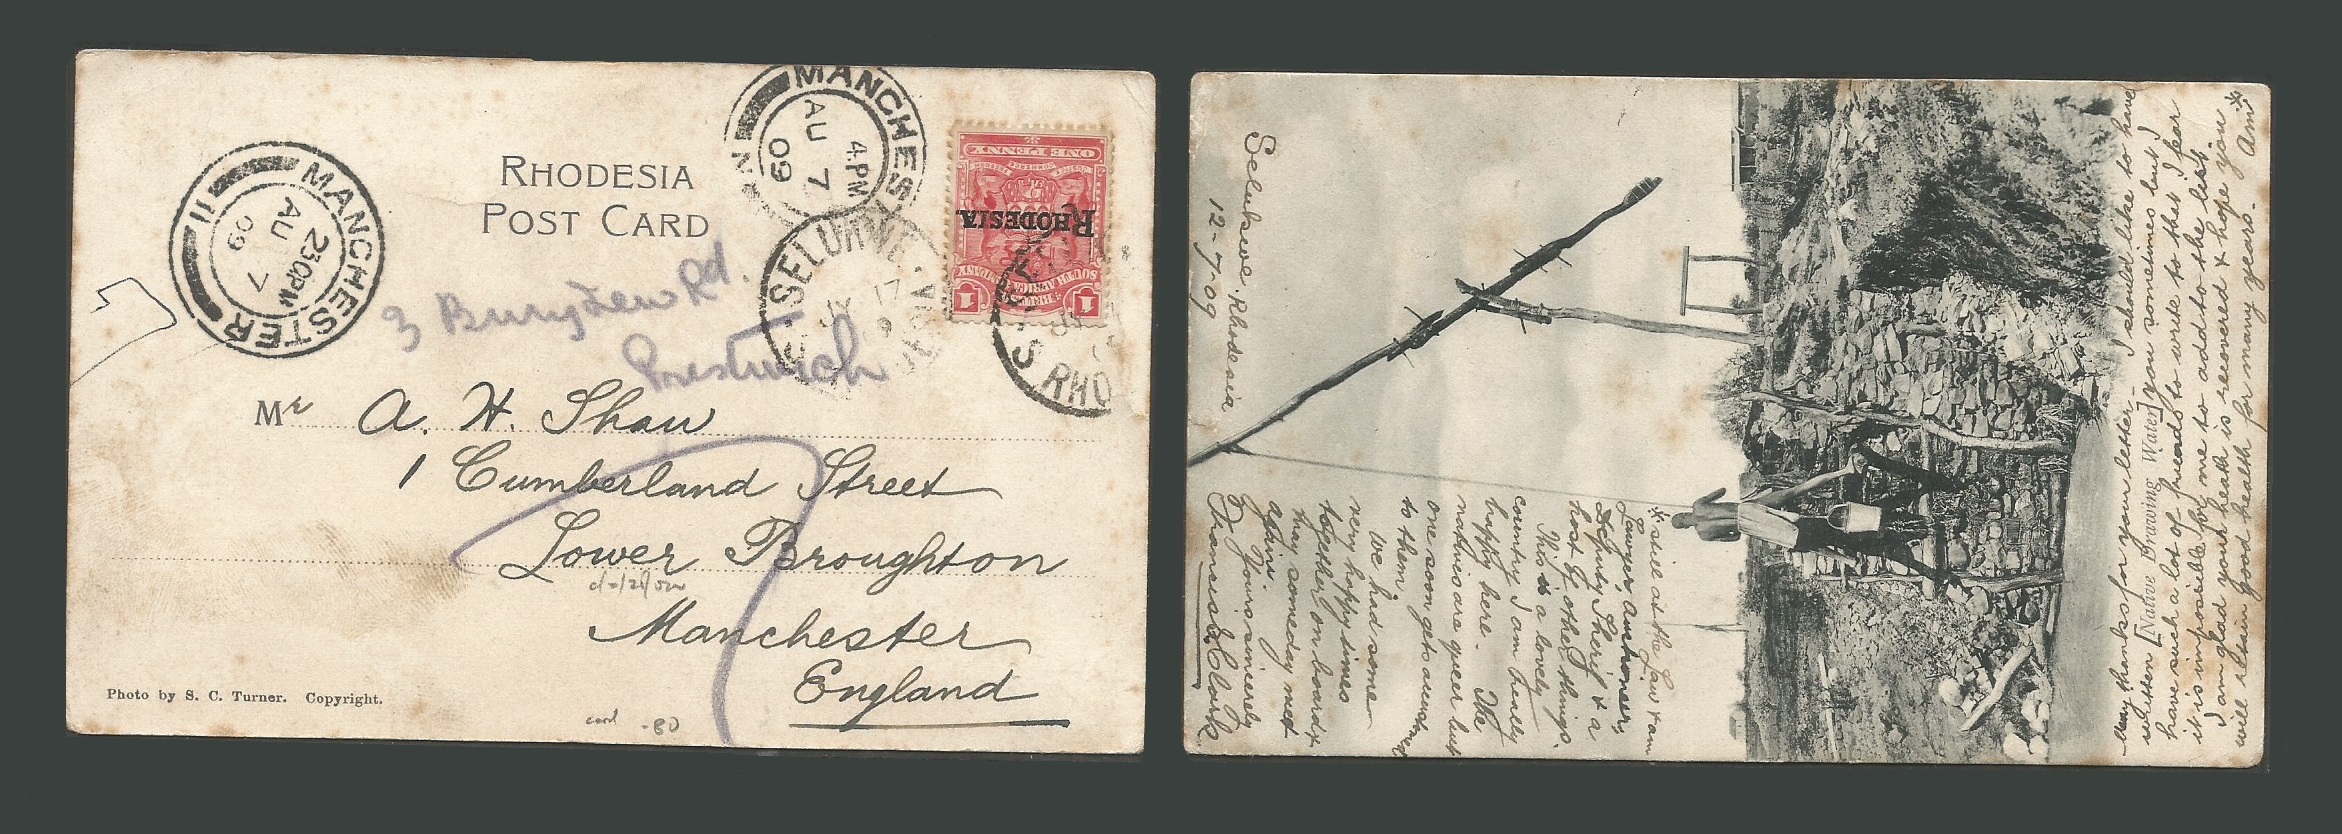 RHODESIA
POST CARD
MANCHESTER
2 30PM
AU 7
09
11
MANCHES
4. PM
AU 7
09
SELUKWE
JY 17
9
S RHO
ONE PENNY
RHODESIA
BRITISH
SOUTH AFRICA COMPANY
1 1
3 Buryview Rd.
Prestwich
Mr A. H. Shaw
1 Cumberland Street
Lower Broughton
Manchester
England
7
card .80
Photo by S. C. Turner. Copyright.
Selukwe. Rhodesia
12-7-09
Many thanks for your letter - I should like to have
written
[Native Drawing Water]
you sometimes but I
have such a lot of friends to write to that I fear
it is impossible for me to add to the list.
I am glad your health is recovered & hope you
will retain good health for many years. Am *
* still at the Law & am
Lawyer, Auctioneer,
Deputy Sheriff & a
host of other things.
This is a lovely
country I am really
happy here. The
natives are queer but
one soon gets accustomed
to them.
We had some
very happy times
together on board &
may someday meet
again.
Yours sincerely
Francis Clark